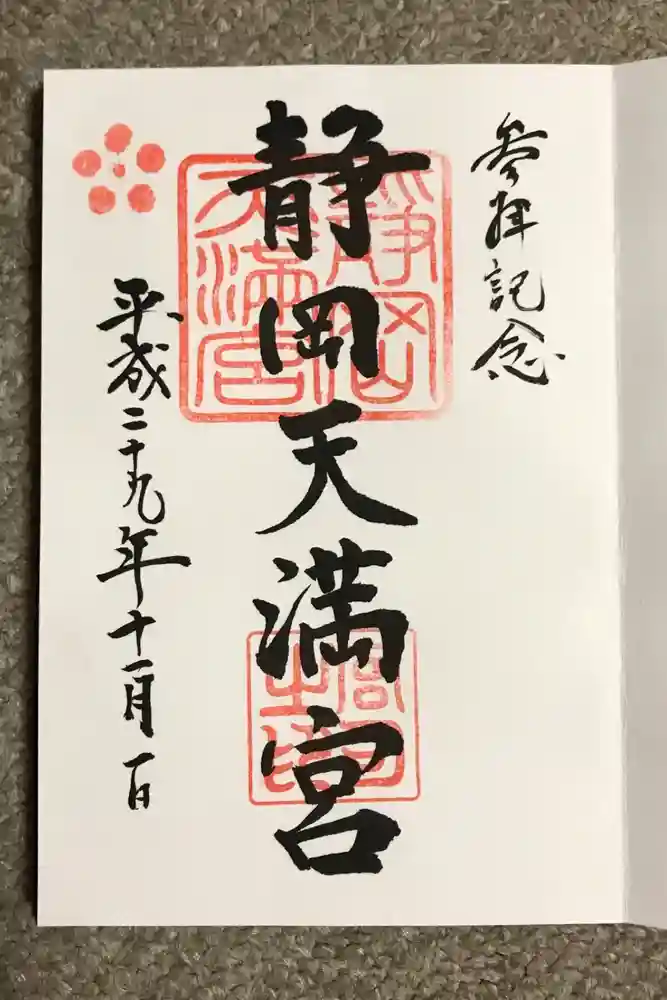 参拝記念
静岡天満宮
静岡
天満宮
宮司
之印
平成二十九年十一月一日